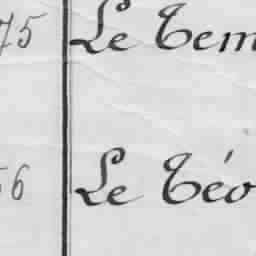 75 Le Tem
56 Le Téo